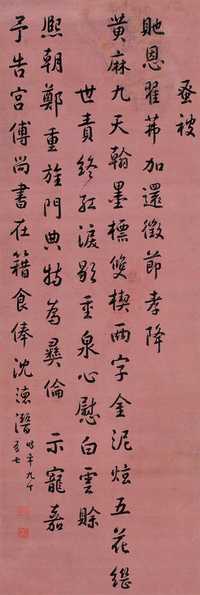 蚤被
貤恩翟茀加還徵節孝降
黄麻九天翰墨標雙楔兩字金泥炫五花繼
世責終紅淚影重泉心慰白雲賖
熙朝鄭重旌門典特為彝倫示寵嘉
予告宫傅尚書在籍食俸沈德潛
時年九十有七